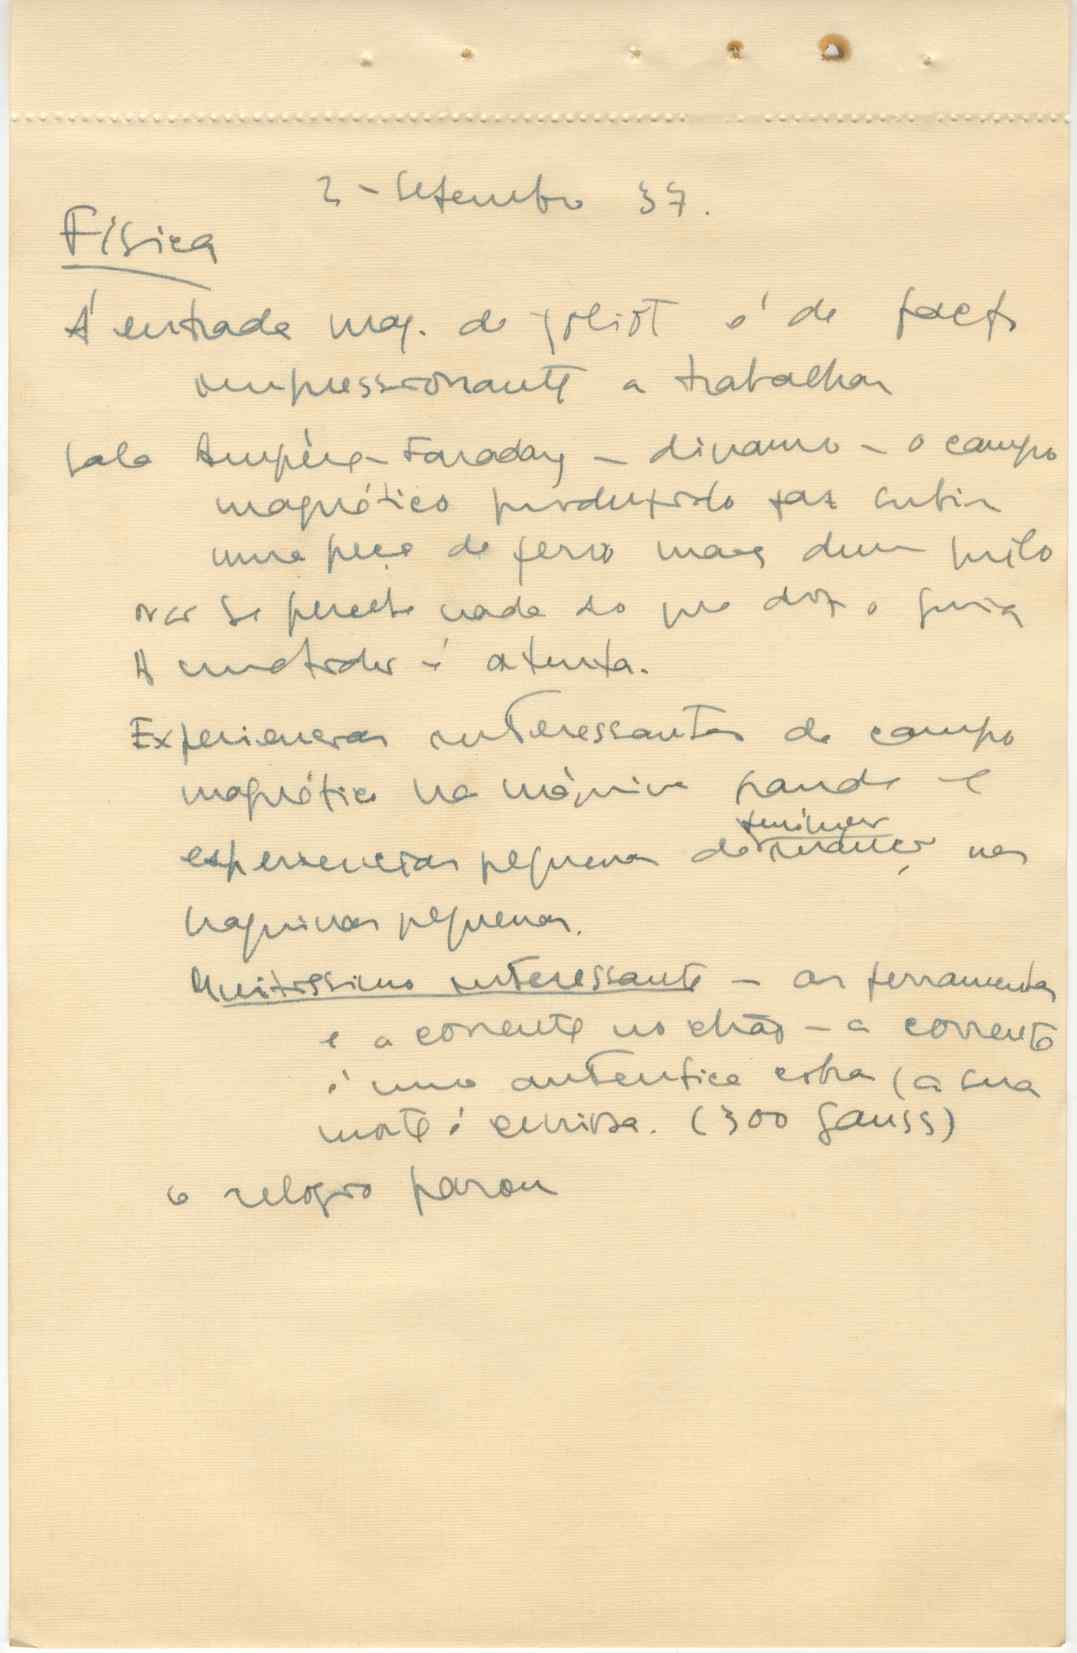 2 - Setembro 37.
Física
Á entrada maq. de Joliot é de facto
impressionante a trabalhar
Sala Ampère-Faraday - dinamo - o campo
magnético produzido faz subir
uma peça de ferro mais dum quilo
não se percebe nada do que diz o guia
A é atenta.
Experiencias interessantes de campo
magnético na máquina grande e
experiencias pequenas de nas
maquinas pequenas.
Muitissimo interessante - as ferramentas
e a corrente no chão - a corrente
é uma autentica cobra (a sua
morte é curiosa. (300 gauss)
o relogio parou